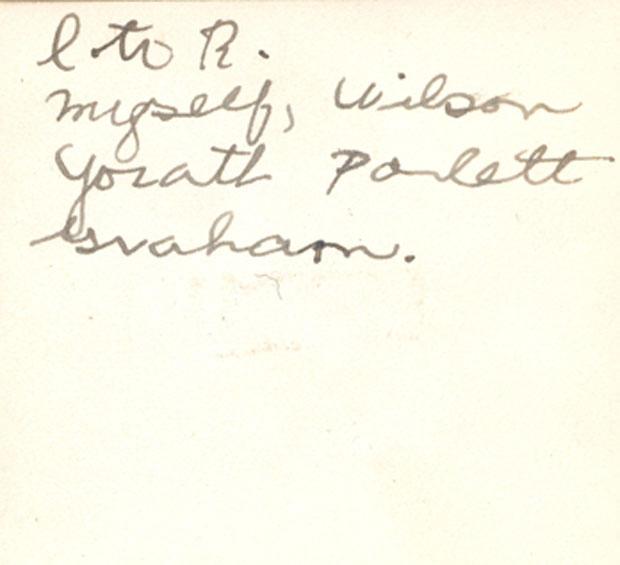 L to R.
myself, Wilson
Yorath Parlett
Graham.